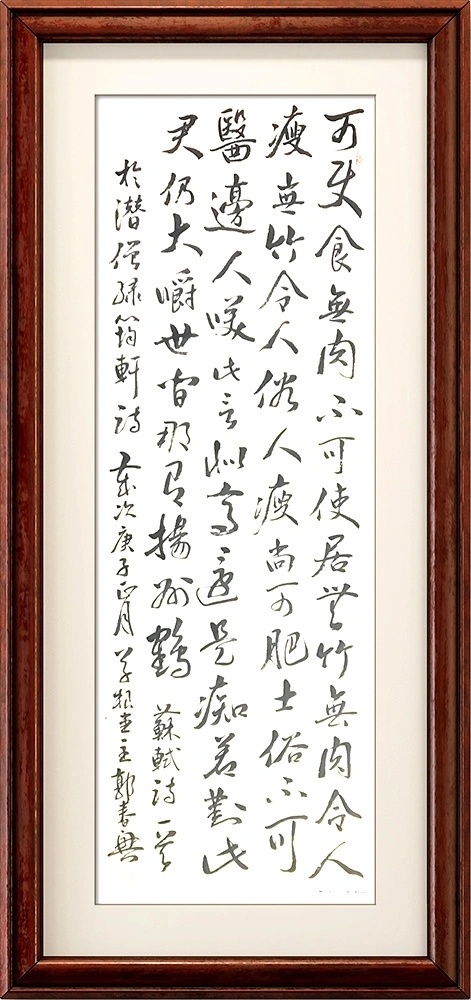 可使食無肉不可使居無竹無肉令人
瘦無竹令人俗人瘦尚可肥士俗不可
醫邊人咲此言似高還是痴若對此
君仍大嚼世間那有揚州鶴 蘇軾詩一首
於潛僧綠筠軒詩 歲次庚子正月 草根主郭春